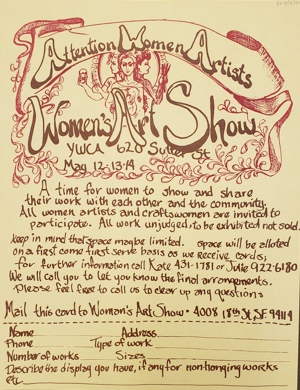 Attention Women Artists
Women's Art Show
YWCA 620 Sutter St
May 12-13-14
A time for women to show and share
their work with each other and the community.
All women artists and craftswomen are invited to
participate. All work unjudged, to be exhibited not sold.
Keep in mind that space may be limited. Space will be alloted
on a first come first serve basis as we receive cards;
for further information call Kate 431-1781 or Julie 922-6180
We will call you to let you know the final arrangements.
Please feel free to call us to clear up any questions
Mail this card to Woman's Art Show · 4008 18th St SF 94114
Name Address
Phone Type of work
Number of works Sizes
Describe the display you have, if any for non-hanging works
etc.